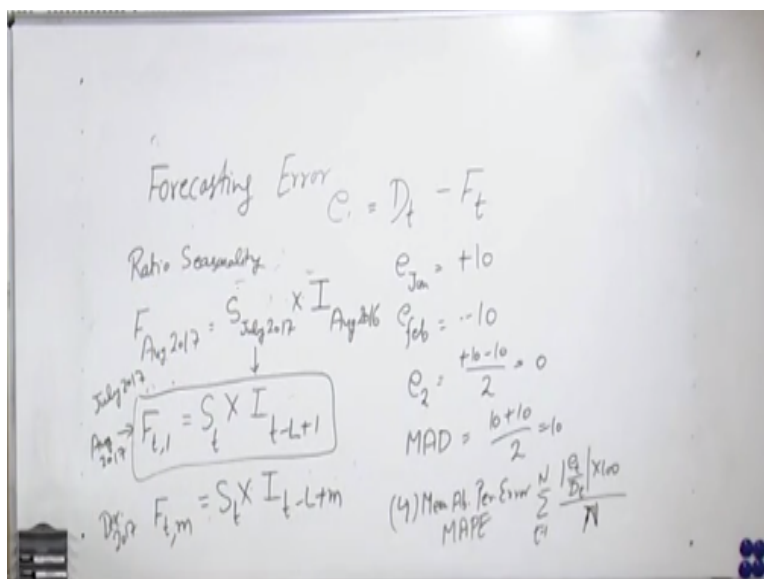 Forecasting Error
e = D_t - F_t
Ratio Seasonality
F_Aug 2017 = S_July 2017 × I_Aug 2016
↓
July 2017
Aug 2017 → F_t,1 = S_t × I_t-L+1
F_t,m = S_t × I_t-L+m
e_Jan = +10
e_feb = -10
e_2 = +10-10 / 2 = 0
MAD = 10+10 / 2 = 10
(4) Mean Ab. Per Error
MAPE
Σ N |e_t / D_t| × 100 / N